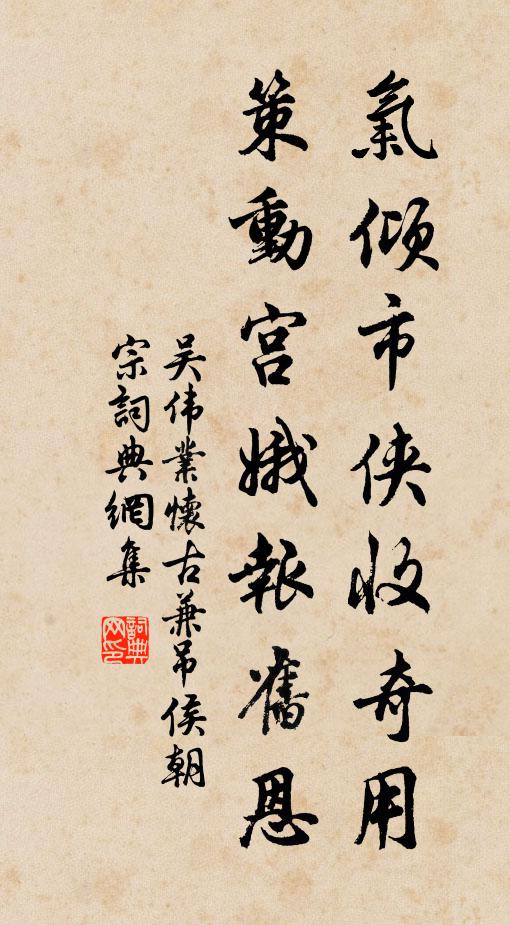 氣傾市俠收奇用
策動宮娥報舊恩
吴偉業懷古兼吊侯朝
宗詞典網集
詞典網印